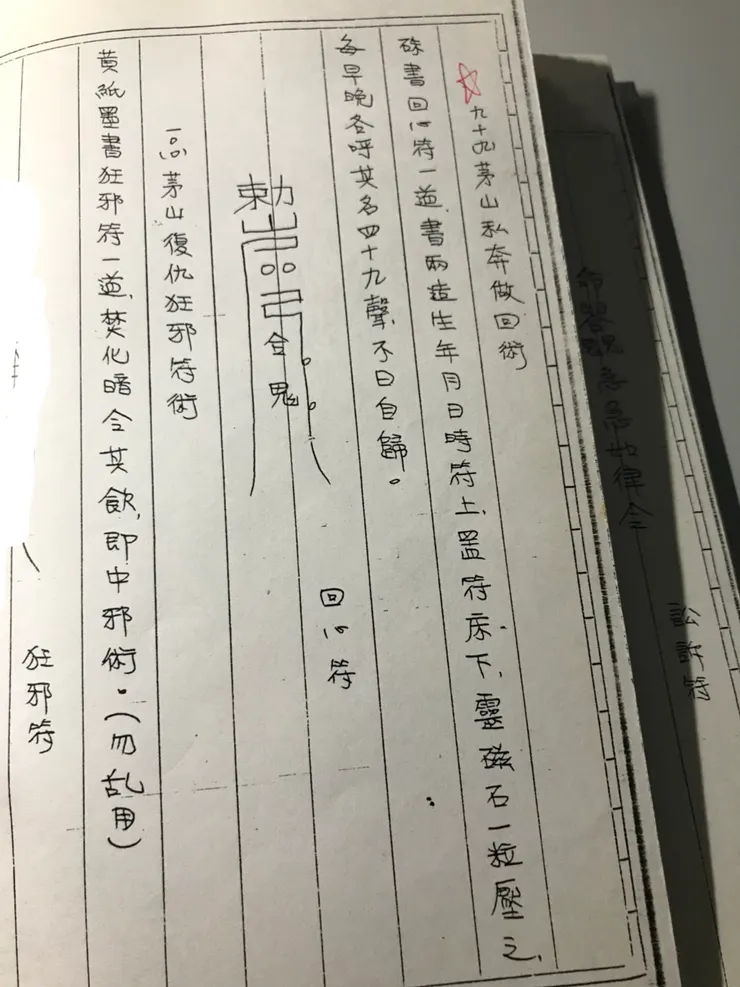 九十九茅山私奔做回術
硃書回心符一道，書兩造生年月日時符上，置符床下，靈磁石一粒壓之，
每早晚各呼其名四十九聲，不日自歸。
勅
令鬼
回心符
一百茅山復仇狂邪符術
黃紙墨書狂邪符一道，焚化暗令其飲，即中邪術。（勿乱用）
狂邪符
急急如律令
訟詐符